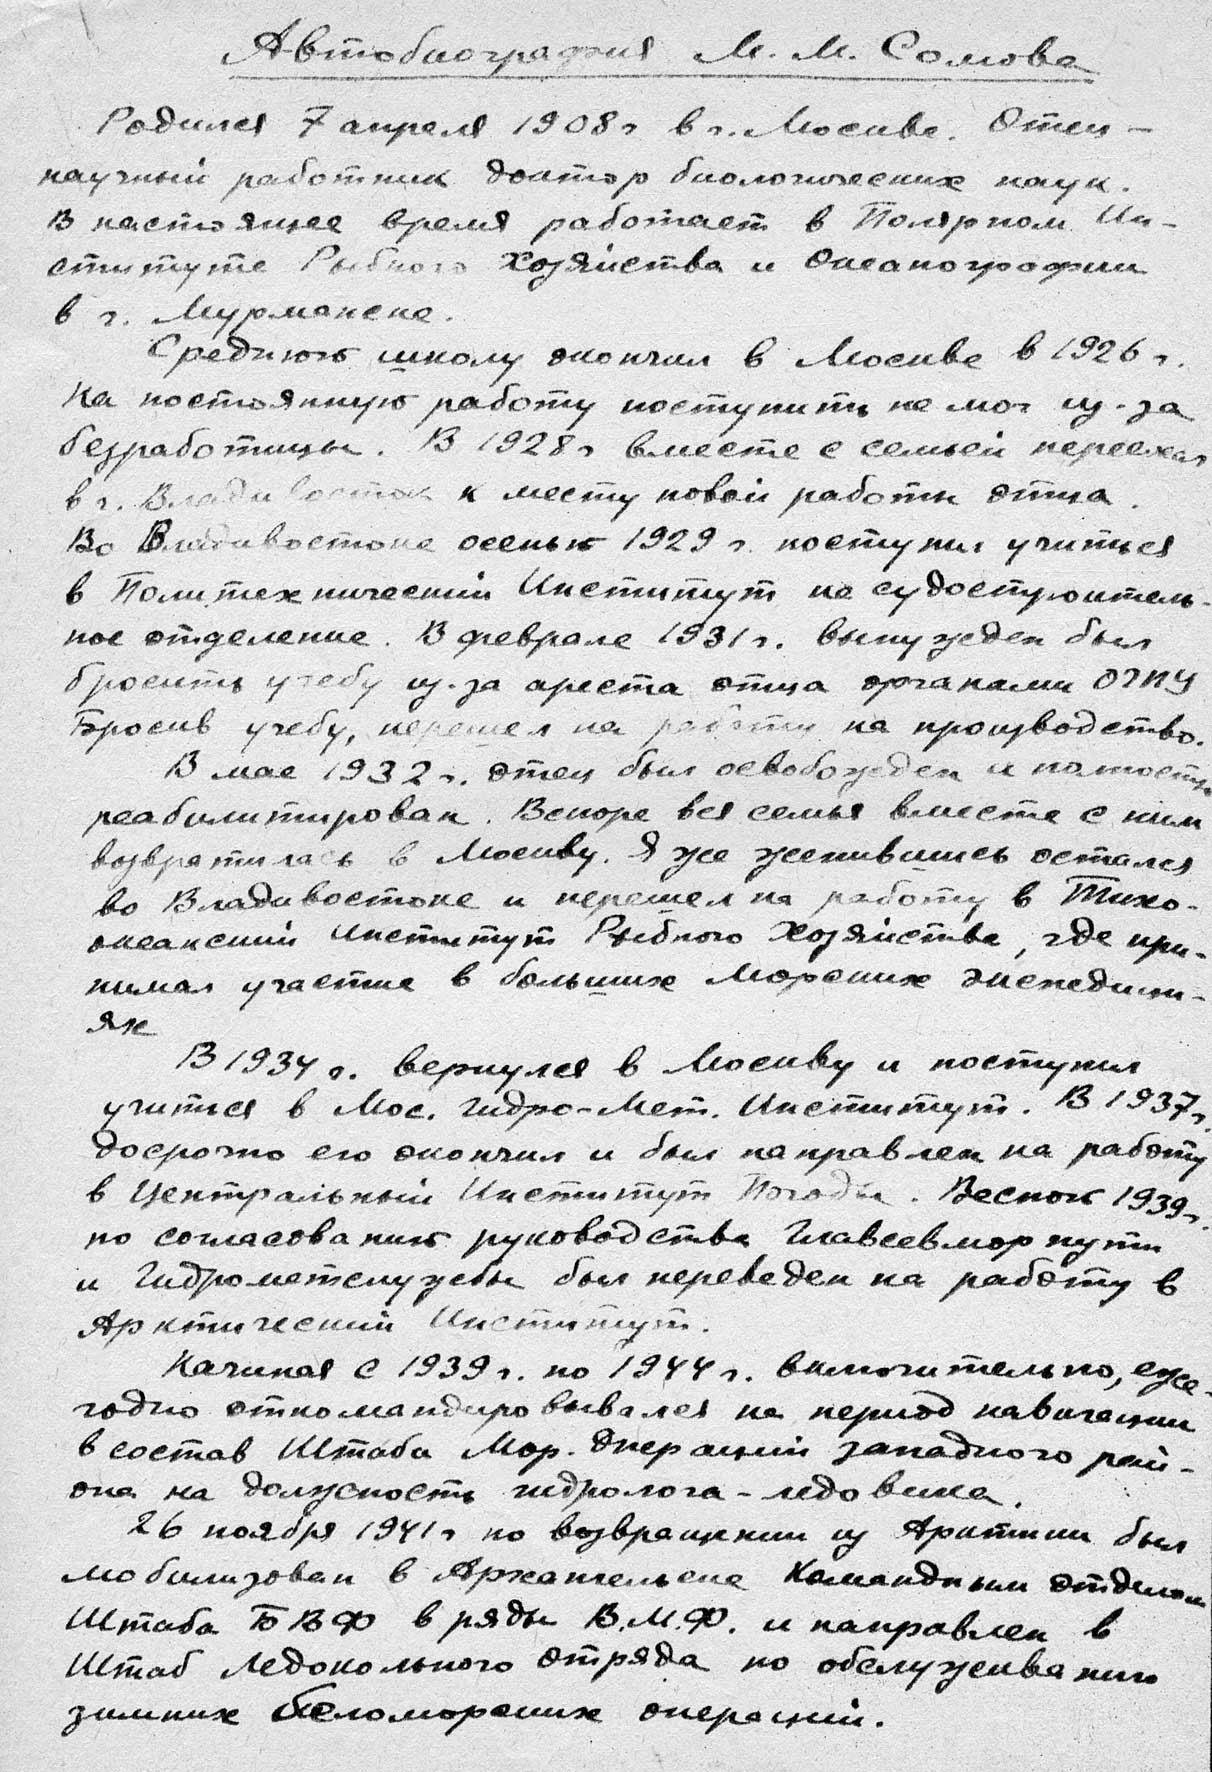 Автобиография М. М. Сомова
Родился 7 апреля 1908 г в г. Москве. Отец –
научный работник доктор биологических наук.
В настоящее время работает в Полярном Ин-
ституте Рыбного Хозяйства и Океанографии
в г. Мурманске.
Среднюю школу окончил в Москве в 1926 г.
На постоянную работу поступить не мог из-за
безработицы. В 1928 г вместе с семьей переехал
в г. Владивосток к месту новой работы отца.
Во Владивостоке осенью 1929 г. поступил учиться
в Политехнический Институт на судостроитель-
ное отделение. В феврале 1931 г. вынужден был
бросить учебу из-за ареста отца органами ОГПУ
Бросив учебу, перешел на работу на производство.
В мае 1932 г. отец был освобожден и полностью
реабилитирован. Вскоре вся семья вместе с ним
возвратилась в Москву. Я же женившись остался
во Владивостоке и перешел на работу в Тихо-
океанский Институт Рыбного Хозяйства, где при-
нимал участие в больших морских экспедици-
ях
В 1934 г. вернулся в Москву и поступил
учиться в Мос. Гидро-Мет. Институт. В 1937 г.
досрочно его окончил и был направлен на работу
в Центральный Институт Погоды. Весной 1939 г.
по согласованию руководства Главсевморпути
и Гидрометслужбы был переведен на работу в
Арктический Институт.
Начиная с 1939 г. по 1944 г. включительно, еже-
годно откомандировывался на период навигации
в состав Штаба Мор. Операций западного рай-
она на должность гидролога-ледовика.
26 ноября 1941 г по возвращении из Арктики был
мобилизован в Архангельске Командным отделом
Штаба БВФ в ряды В.М.Ф. и направлен в
Штаб Ледокольного отряда по обслуживанию
зимних беломорских операций.